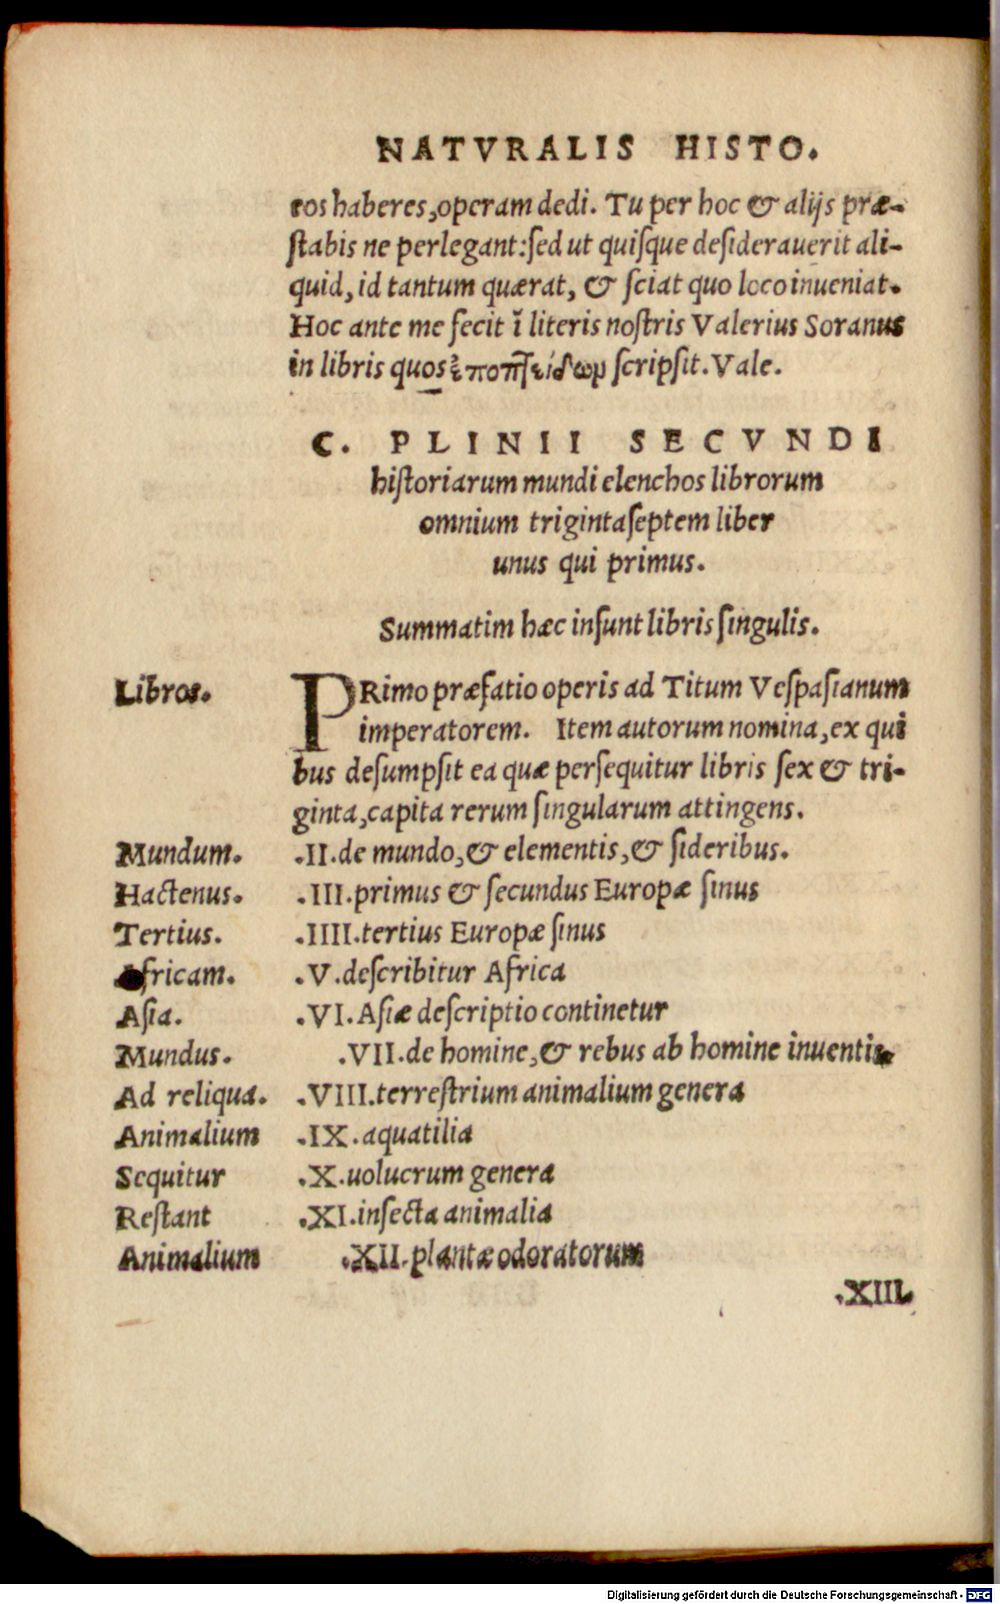 NATVRALIS HISTO.
eos haberes, operam dedi. Tu per hoc & alijs præ-
stabis ne perlegant: sed ut quisque desiderauerit ali-
quid, id tantum quærat, & sciat quo loco inueniat.
Hoc ante me fecit ĩ literis nostris Valerius Soranus
in libris quos scripsit. Vale.
C. PLINII SECVNDI
historiarum mundi elenchos librorum
omnium trigintaseptem liber
unus qui primus.
Summatim hæc insunt libris singulis.
Libros. PRimo præfatio operis ad Titum Vespasianum
imperatorem. Item autorum nomina, ex qui
bus desumpsit ea quæ persequitur libris sex & tri-
ginta, capita rerum singularum attingens.
Mundum. .II. de mundo, & elementis, & sideribus.
Hactenus. .III. primus & secundus Europæ sinus
Tertius. .IIII. tertius Europæ sinus
Africam. .V. describitur Africa
Asia. .VI. Asiæ descriptio continetur
Mundus. .VII. de homine, & rebus ab homine inuentis
Ad reliqua. .VIII. terrestrium animalium genera
Animalium .IX. aquatilia
Sequitur .X. uolucrum genera
Restant .XI. insecta animalia
Animalium .XII. plantæ odoratorum
.XIII.
Digitalisierung gefördert durch die Deutsche Forschungsgemeinschaft - DFG